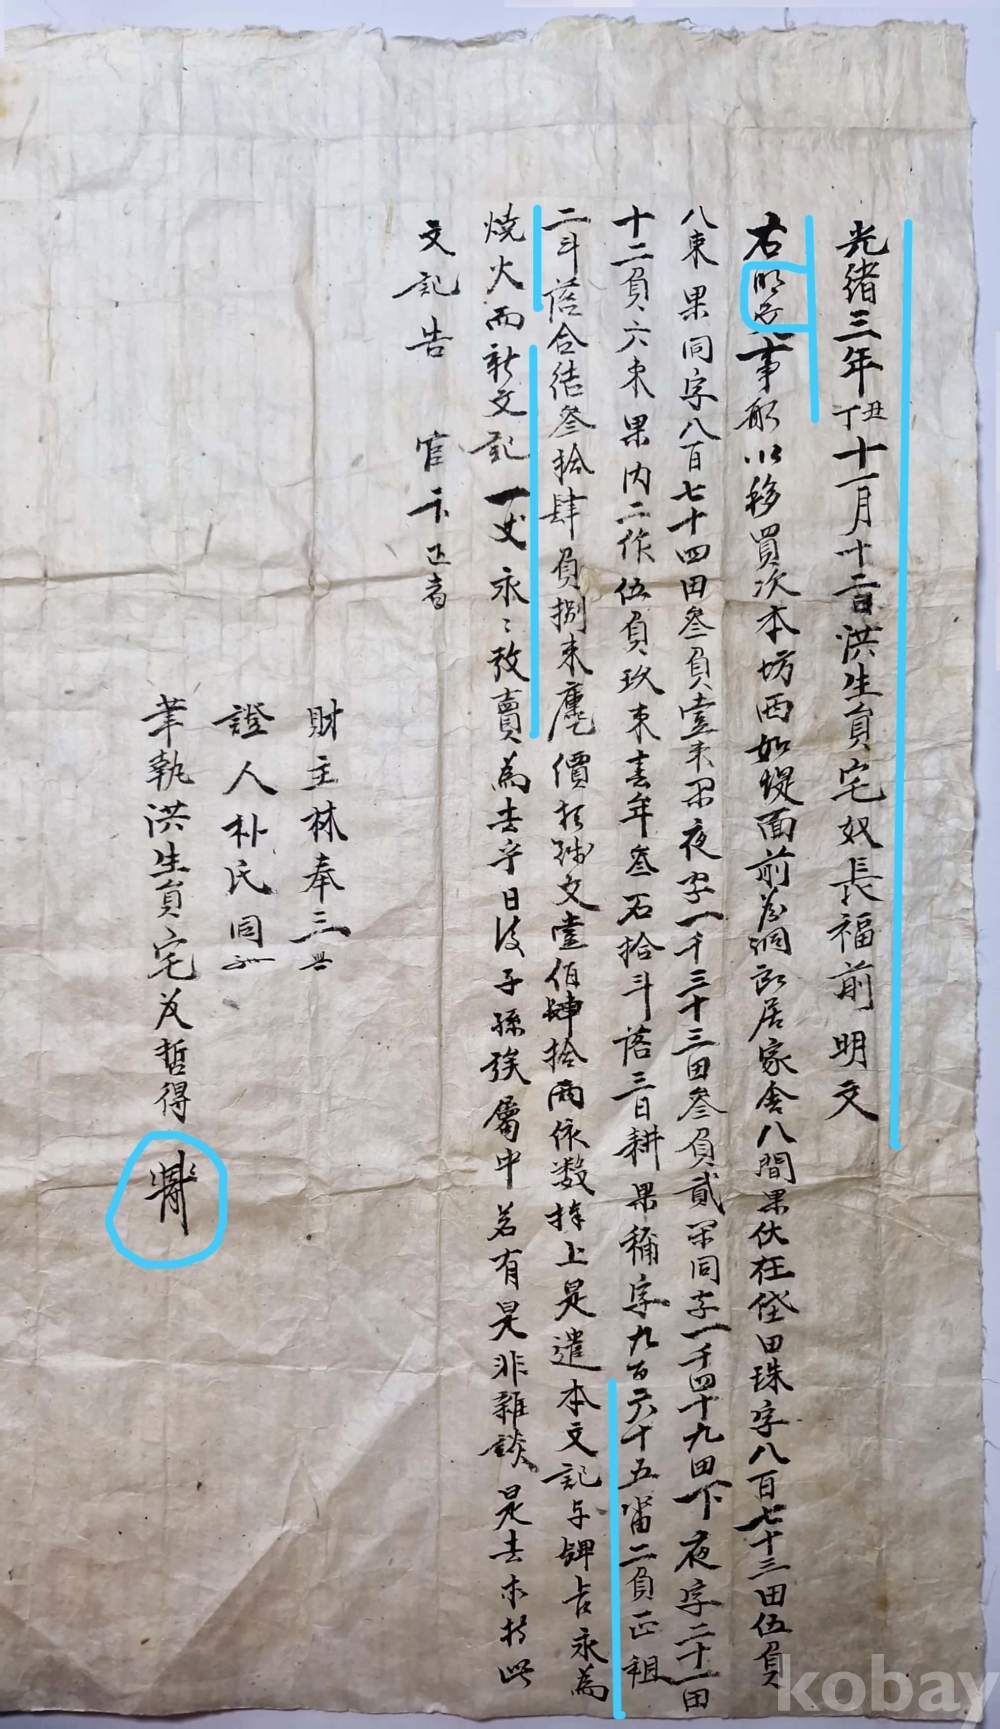 光緒三年丁丑十一月十二日洪生員宅奴長福前明文
右明文事段以移買次本坊西如堤面前洞所居家舍八間果伏在垈田珠字八百七十三田伍負
八束果同字八百七十四田叄負壹束果夜字一千三十三田叄負貳果同字一千四十九田下夜字二十一田
十二負六束果內二作伍負玖束春年叄石拾斗落三日耕果稱字九百六十五畓二負正租
二斗落合結叄拾肆負捌束庫乙價折錢文壹佰肆拾兩依數捧上是遣本文記与牌旨永為
燒火而新文記一丈永〻放賣為去乎日後子孫族屬中若有是非雜談是去木持此
文記告官卞正者
財主林奉三
證人朴氏同
筆執洪生員宅哲得
kobay